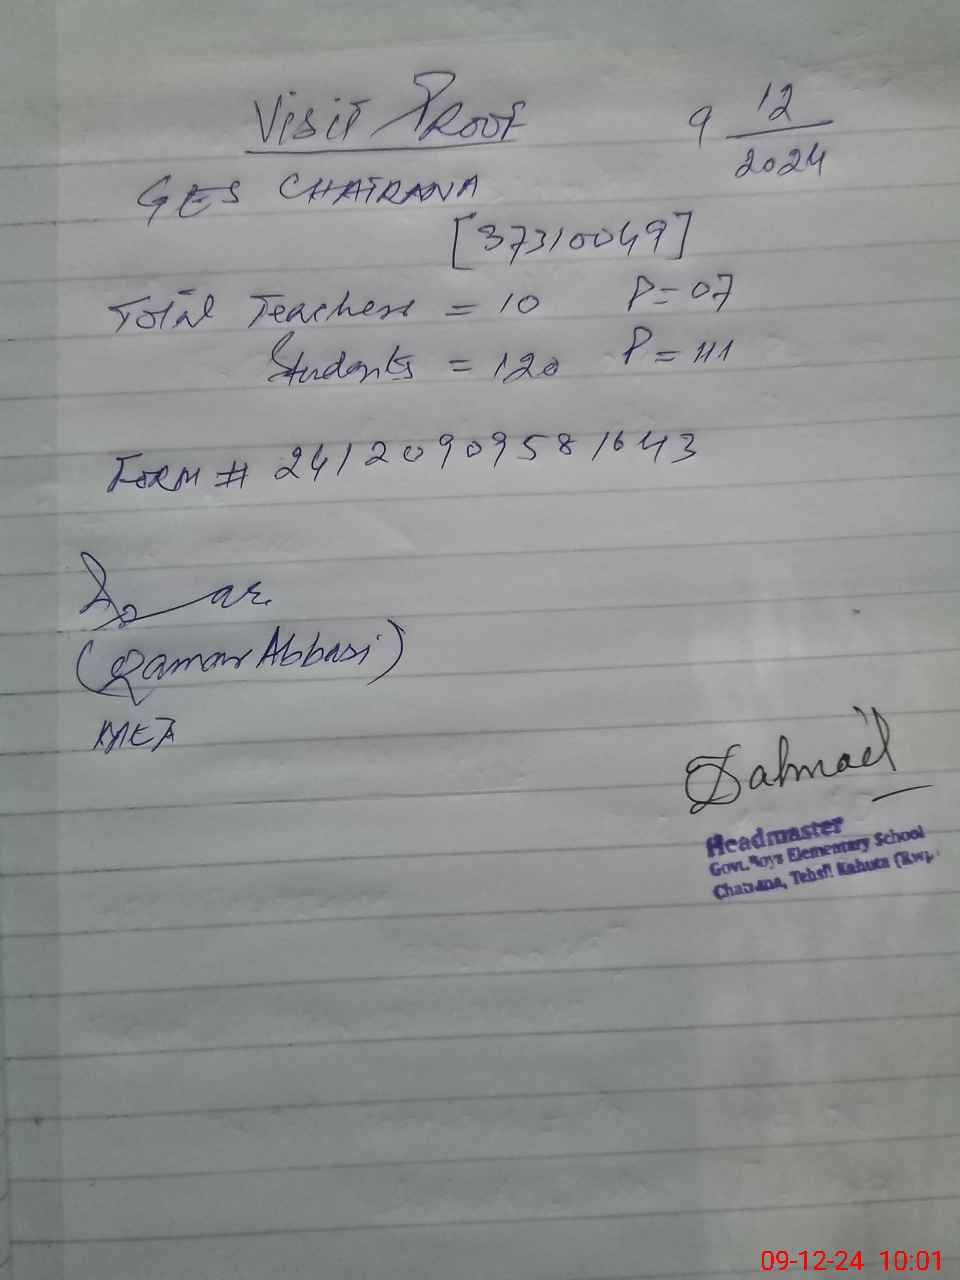 Visit Proof
9 12
2024
GES CHATRANA
[37310049]
Total Teachers = 10 P = 07
Students = 120 P = 111
Form # 24120909581643
(Qamar Abbasi)
MEA
Headmaster
Govt. Boys Elementary School
Chatrana, Tehsil Kahuta (Rwp.
09-12-24 10:01